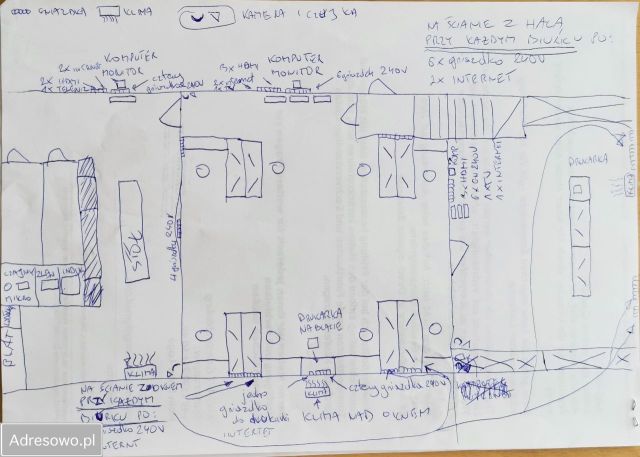 GNIAZDKA KLIMA KAMERA I CZUJKA
NA ŚCIANIE Z HALĄ
PRZY KAŻDYM BIURKU PO:
6x gniazdko 240V
2x INTERNET
KOMPUTER
MONITOR
2x internet
2x HDMI
cztery
gniazdka 240V
KOMPUTER
MONITOR
3x HDMI
6 gniazdek 240V
DRUKARKA
4 gniazdka 240V
STÓŁ
3x HDMI
6x GN 240V
1x RTV
1x INTERNET
CZAJNIK
ZLEW
MIKRO
BLAT
DRUKARKA
NA BLACIE
KLIMA
KLIMA
NA ŚCIANIE Z OKNEM
PRZY KAŻDYM
BIURKU PO:
gniazdko 240V
jedno
gniazdko
do drukarki
INTERNET
cztery gniazdka 240V
KLIMA NAD OKNEM
Adresowo.pl